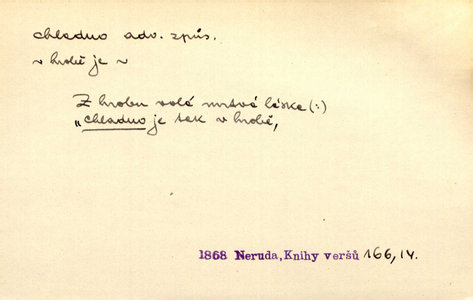 chladno adv. způs.
v hrobě je ~
Z hrobu volá mrtvá láska (:)
„chladno je tak v hrobě,
1868 Neruda, Knihy veršů 166,14.